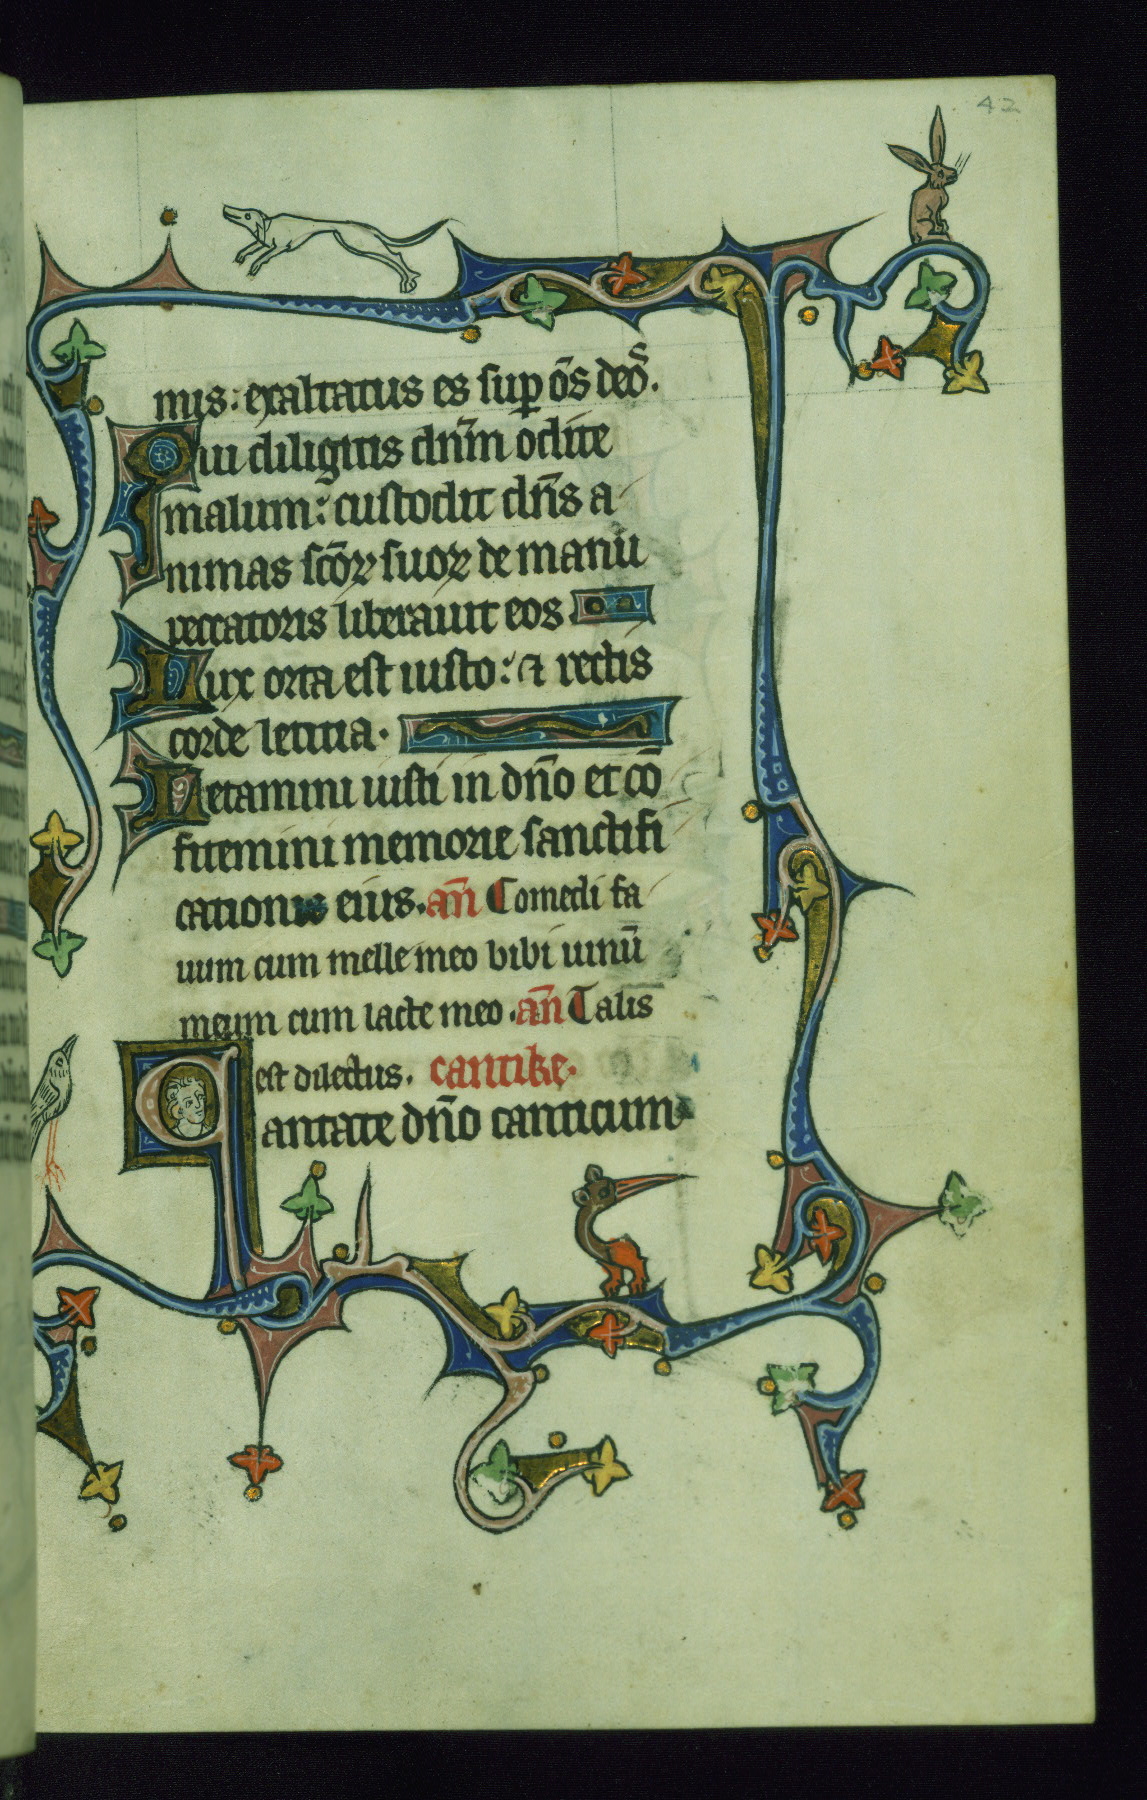 42
mis: exaltatus es sup om̄s deōs.
Qui diligitis dn̄m odite
malum: custodit dn̄s a
nimas sc̄oꝝ suoꝝ de manu
peccatoris liberauit eos
Lux orta est iusto: ⁊ rectis
corde letitia.
Letamini iusti in dn̄o et cō
fitemini memorie sanctifi
cationis eius. an̄ Comedi fa
uum cum melle meo bibi uinū
meum cum lacte meo. an̄ Talis
est dilectus. cantike.
Cantate dn̄o canticum